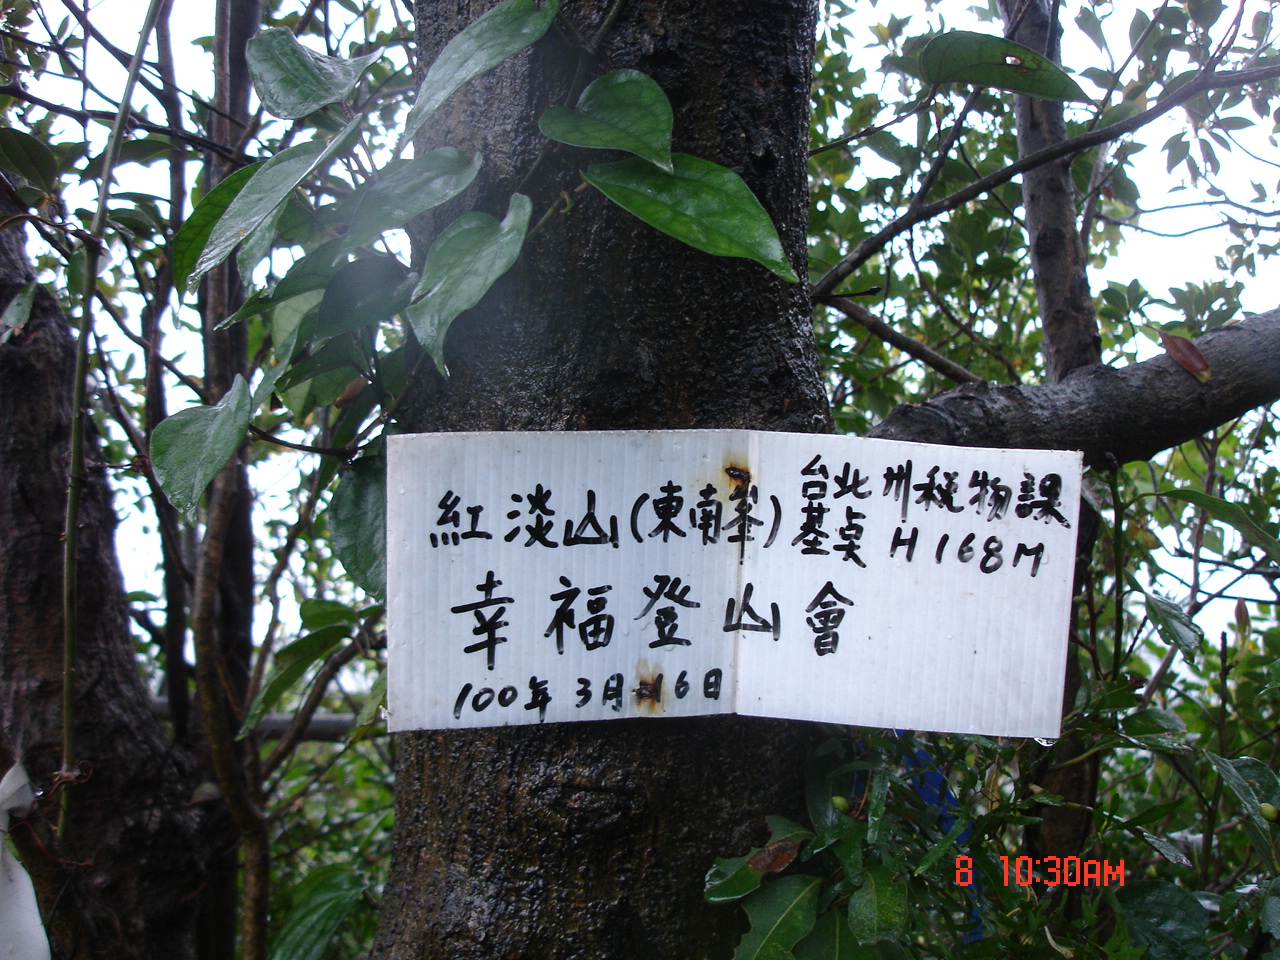 紅淡山(東南峯)台北州稅物課
基桌 H168M
幸福登山會
100年3月16日
8 10:30AM